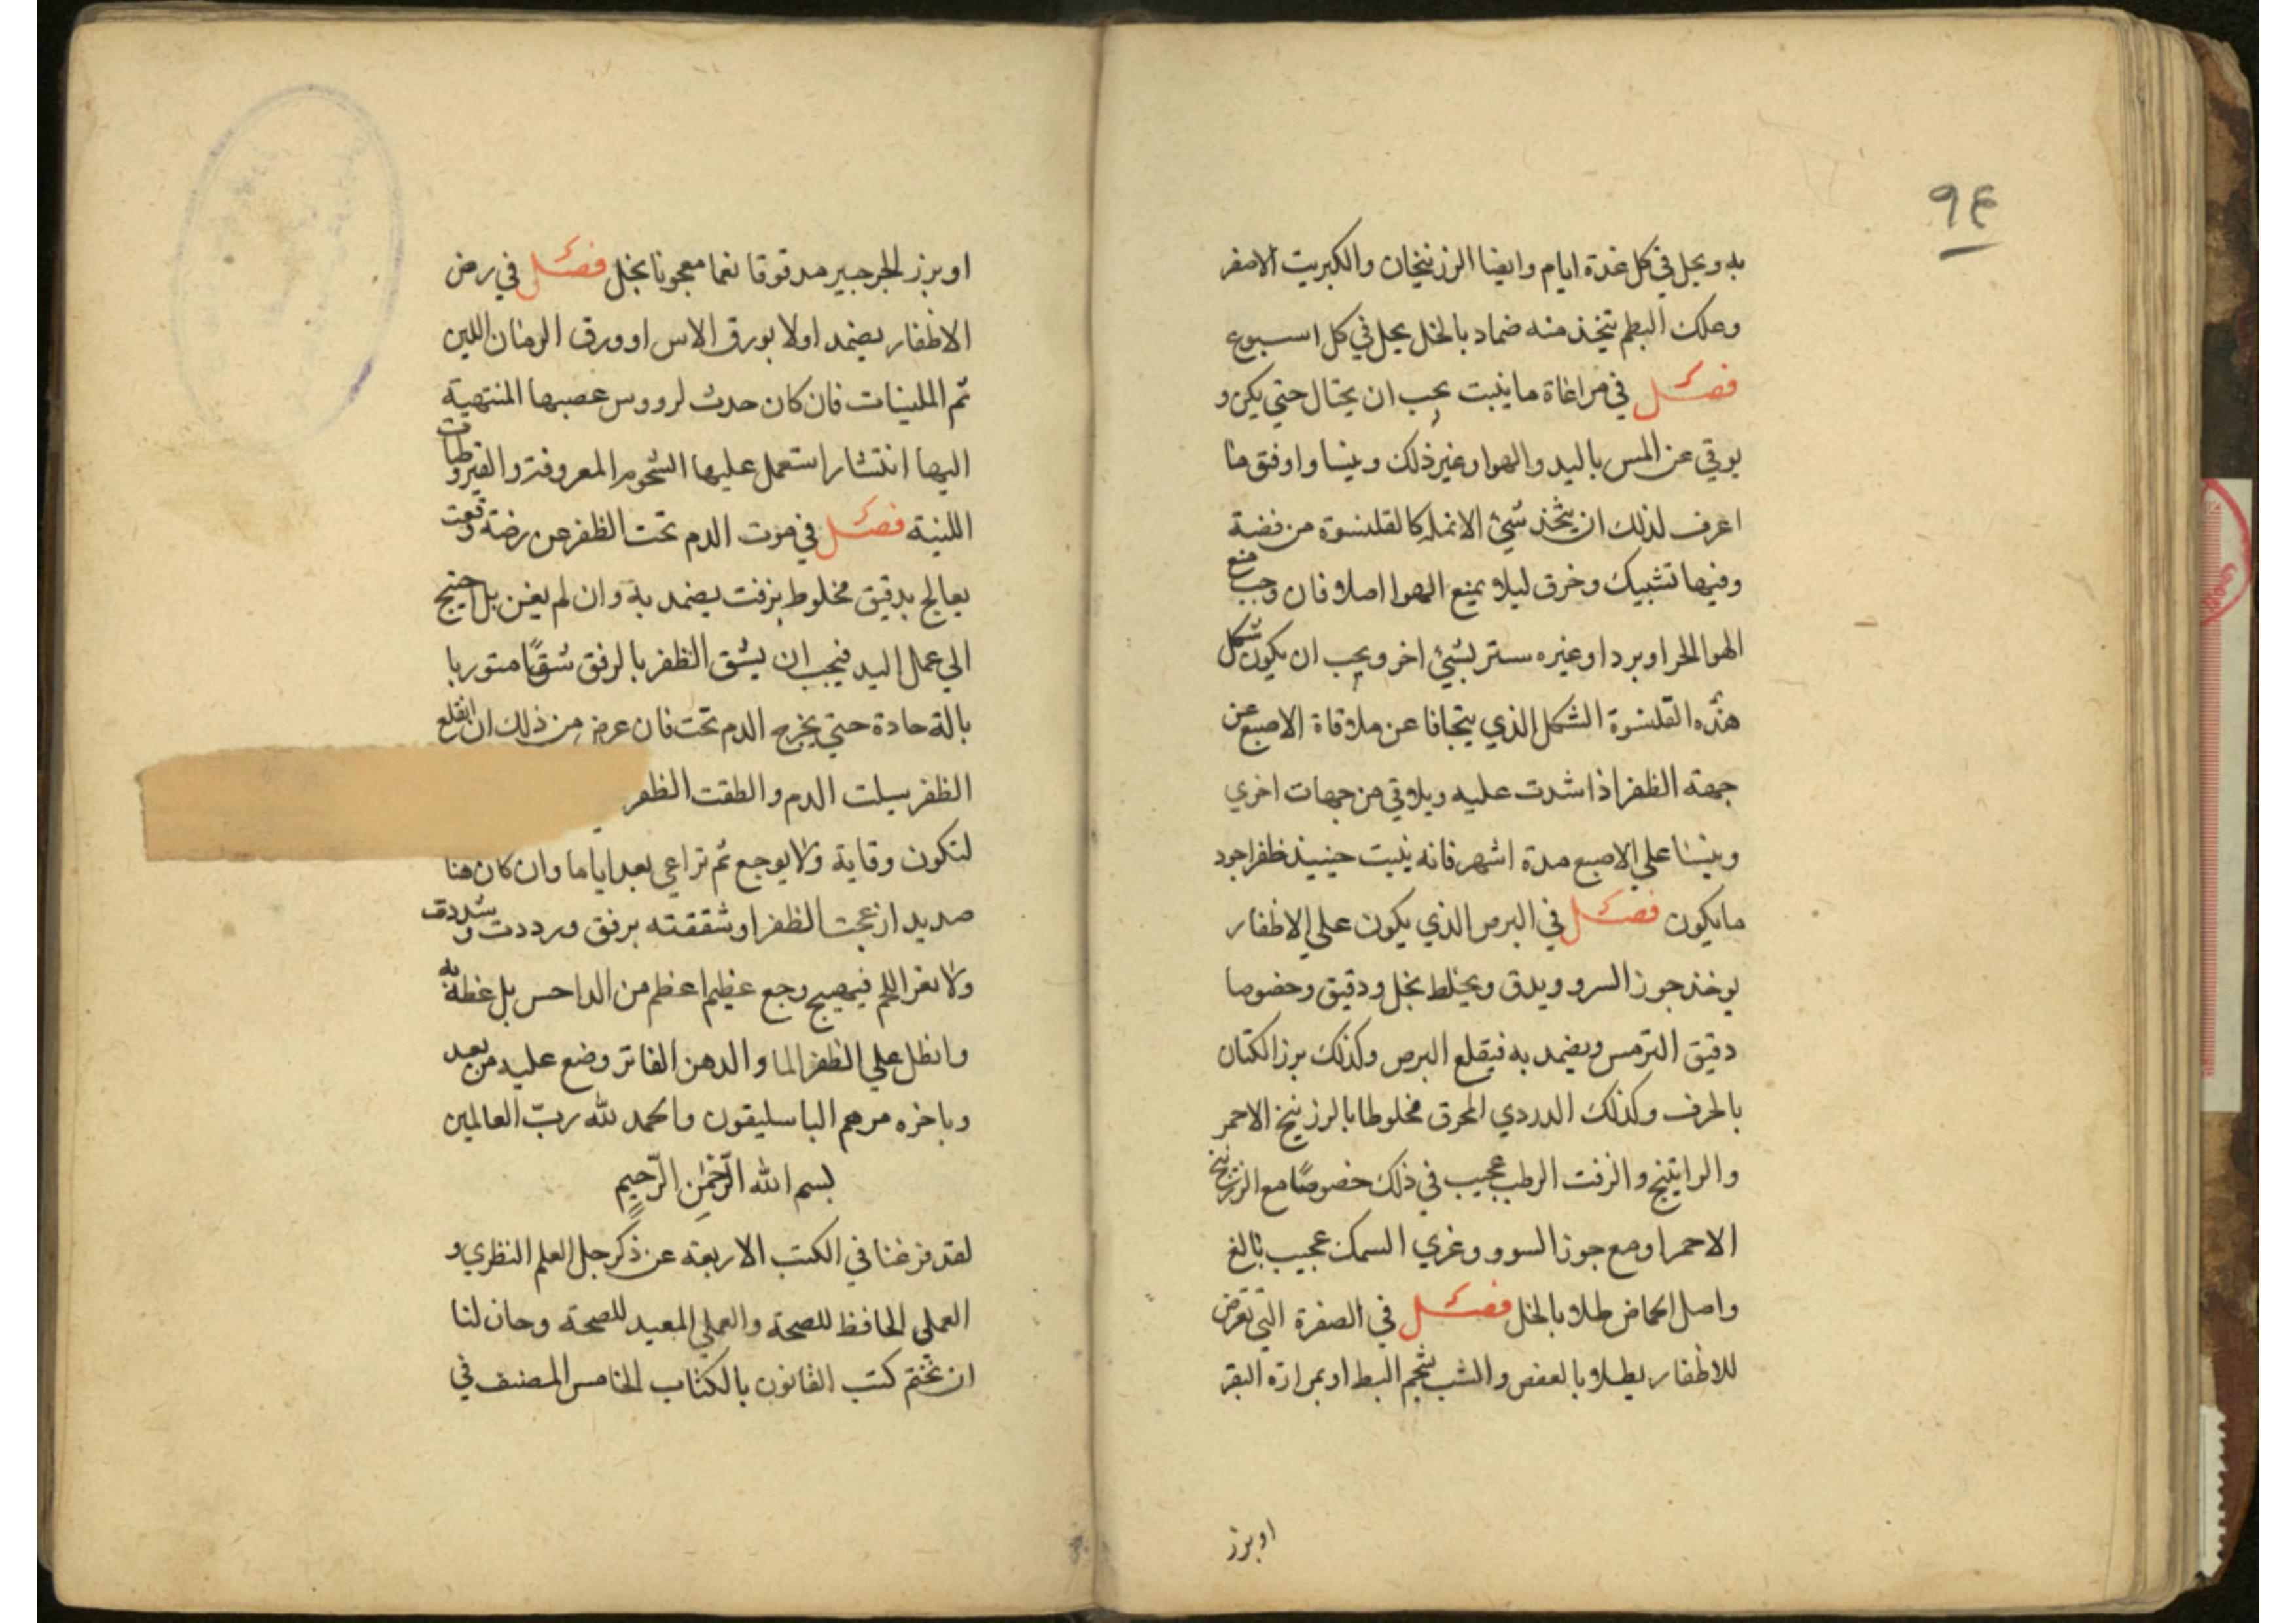 ٩٤
به ويحل في كل عدة ايام وايضا الزرنيخان والكبريت الاصفر
وعلك البطم يتخذ منه ضماد بالخل يحل في كل اسبوع
فصل في مراعاة ما ينبت يجب ان يحتال حتي يكن و
يوقي عن المس باليد والهوا وغير ذلك وينسا واوفق ما
اعرف لذلك ان يتخذ شئ الانمله كالقلنسوة من فضة
وفيها تشبيك وخرق ليلا يمنع الهوا اصلا فان وجب منع
الهوا لحر او برد او غيره ستر بشئ اخر ويجب ان يكون شكل
هذه القلنسوة الشكل الذي يتجافا عن ملاقاة الاصبع عن
جهة الظفر اذا شدت عليه ويلاقي من جهات اخري
وينسا علي الاصبع مدة اشهر فانه ينبت حينيذ ظفر اجود
ما يكون فصل في البرص الذي يكون علي الاظفار
يوخذ جوز السرو ويدق ويخلط بخل ودقيق وخصوصا
دقيق الترمس ويضمد به فيقلع البرص وكذلك بزر الكتان
بالحرف وكذلك الدردي المحرق مخلوطا بالزرنيخ الاحمر
والراتينج والزفت الرطب عجيب في ذلك خصوصًا مع الزرنيخ
الاحمر او مع جوز السوو وغري السمك عجيب بالغ
واصل الحماض طلا بالخل فصل في الصفرة التي تعرض
للاظفار يطلا بالعفص والشب بشحم البط او بمرارة البقر
او بزر
او بزر الجرجير مدقوقا نعما معجونا بخل فصل في رض
الاظفار يضمد اولا بورق الاس او ورق الرمان اللين
ثم الملينات فان كان حدث لرووس عصبها المنتهية
اليها انتشار استعمل عليها الشحوم المعروفة والقيروطيات
اللينة فصل في موت الدم تحت الظفر عن رضة وقعت
يعالج بدقيق مخلوط بزفت يضمد به وان لم يغن بل احتيج
الي عمل اليد فيجب ان يشق الظفر بالرفق شقًا متوربا
بالة حادة حتي يخرج الدم تحت فان عرض من ذلك ان انقلع
الظفر سيلت الدم والطقت الظفر
لتكون وقاية ولا يوجع ثم تراعي بعد اياما وان كان هنا
صديد ازعجت الظفر او شققته برفق ورددت وشددت
ولا تعر اللحم فيهيج وجع عظيم اعظم من الداحس بل غطه به
وانطل علي الظفر الما والدهن الفاتر وضع عليه من بعد
وباخره مرهم الباسليقون والحمد لله ربّ العالمين
بسم الله الرّحمٰن الرّحيمِ
لقد فرغنا في الكتب الاربعة عن ذكر جل العلم النظري و
العملي الحافظ للصحة والعملي المعيد للصحة وحان لنا
ان نختم كتب القانون بالكتاب الخامس المصنف في